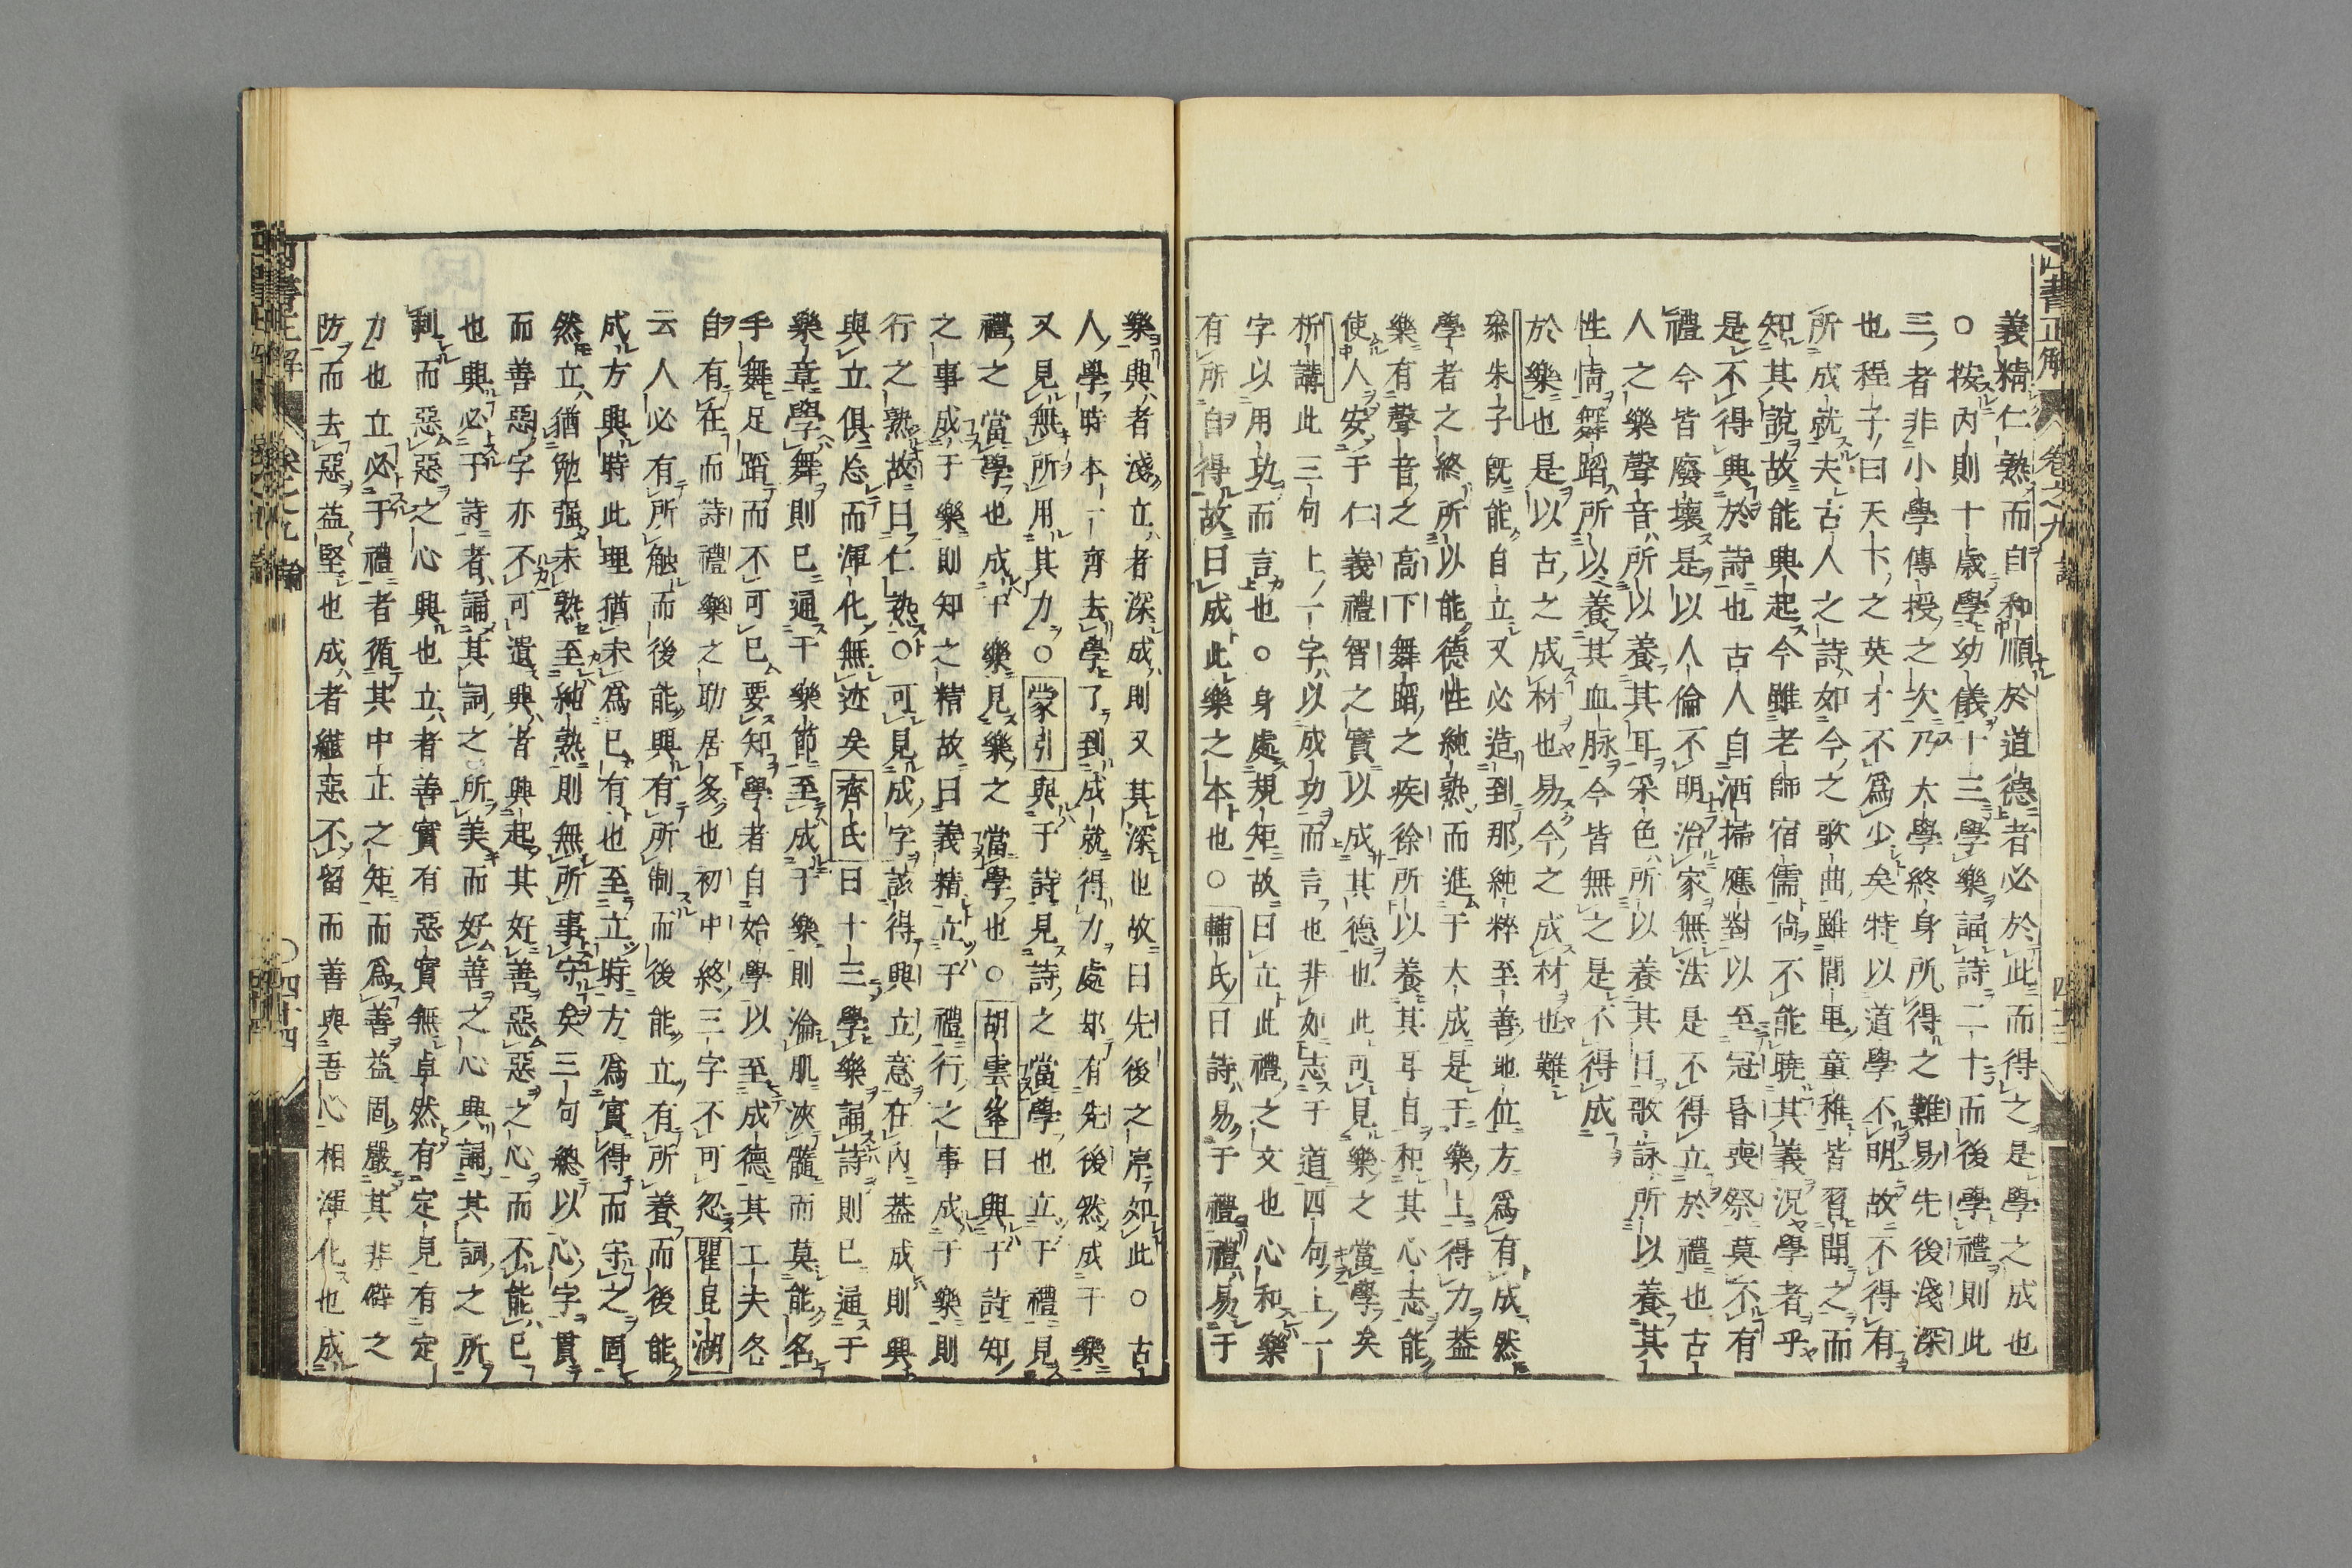 四書正解 卷之九 論 四十三
義精仁熟而自和順於道德者必於此而得之是學之成也
○按內則十歲學幼儀十三學樂誦詩二十而後學禮則此
三者非小學傳授之次乃大學終身所得之難易先後淺深
也程子曰天下之英才不爲少矣特以道學不明故不得有
所成就夫古人之詩如今之歌曲雖閭里童稚皆習聞之而
知其說故能興起今雖老師宿儒尙不能曉其義況學者乎
是不得興於詩也古人自洒掃應對以至冠昏喪祭莫不有
禮今皆廢壞是以人倫不明治家無法是不得立於禮也古
人之樂聲音所以養其耳采色所以養其目歌詠所以養其
性情舞蹈所以養其血脉今皆無之是不得成
於樂也是以古之成材也易今之成材也難
叅朱子旣能自立又必造到那純粹至善地位方爲有成然
學者之終所以能德性純熟而進于大成是于樂上得力葢
樂有聲音之高下舞蹈之疾徐所以養其耳目和其心志能
使人安于仁義禮智之實以成其德也此可見樂之當學矣
析講此三句上一字以成功而言也非如志于道四句上一
字以用功而言也○身處規矩故曰立此禮之文也心和樂
有所自得故曰成此樂之本也○輔氏曰詩易于禮禮易于
樂興者淺立者深成則又其深也故曰先後之序如此○古
人學時本一齊去學學了到成就得力處却有先後然成于樂
又見無所用其力○蒙引興于詩見詩之當學也立于禮見
禮之當學也成于樂見樂之當學也○胡雲峯曰興于詩知
之事成于樂則知之精故曰義精立于禮行之事成于樂則
行之熟故曰仁熟○可見成字該得興立意在內葢成則興
與立俱忘而渾化無迹矣齊氏曰十三學樂誦詩則已通于
樂章學舞則已通于樂節至成于樂則淪肌浹髓而莫能名
手舞足蹈而不可已要知學者自始學以至成德其工夫各
自有在而詩禮樂之功居多也初中終三字不可忽瞿昆湖
云人必有所觸而後能興有所制而後能立有所養而後能
成方興時此理猶未爲已有也至立時方爲實得而守之固
然立猶勉强未熟至純熟則無所事守矣三句總以心字貫
而善惡字亦不可遺興者興起其好善惡惡之心而不能已
也興必于詩者誦其詞之所美而好善之心興誦其詞之所
刺而惡惡之心興也立者善實有惡實無卓然有定見有定
力也立必于禮者循其中正之矩而爲善益固嚴其非僻之
防而去惡益堅也成者纖惡不留而善與吾心相渾化也成
四書正解 卷之九 論 ○四十四